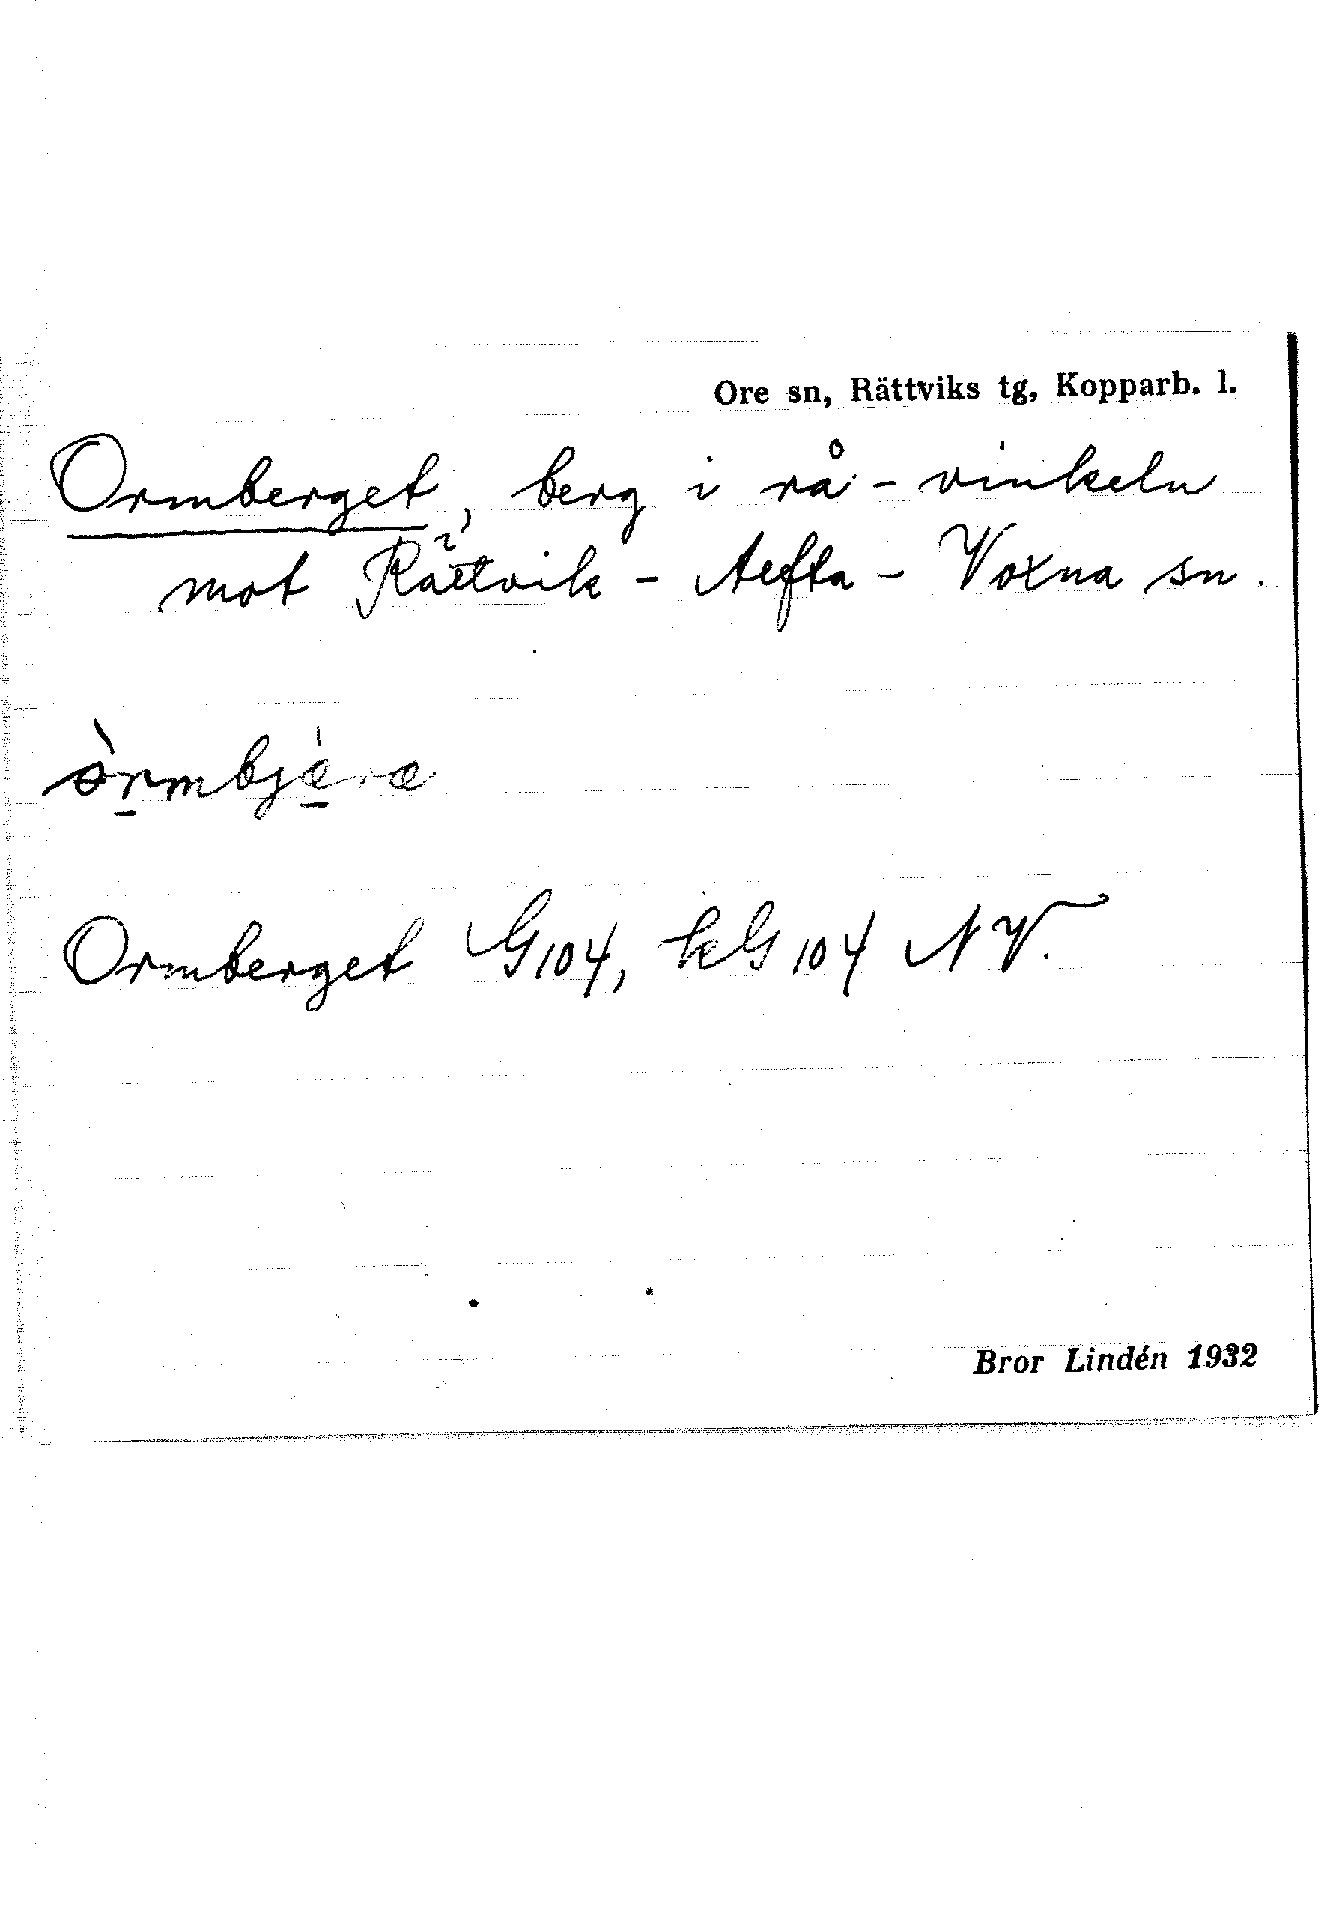 Ore sn, Rättviks tg, Kopparb. l.
Ormberget, berg i rå-vinkeln
mot Rättvik - Alfta - Voxna sn.
òrmbjæ̀ræ
Ormberget G104, kG 104 NV.
Bror Lindén 1932